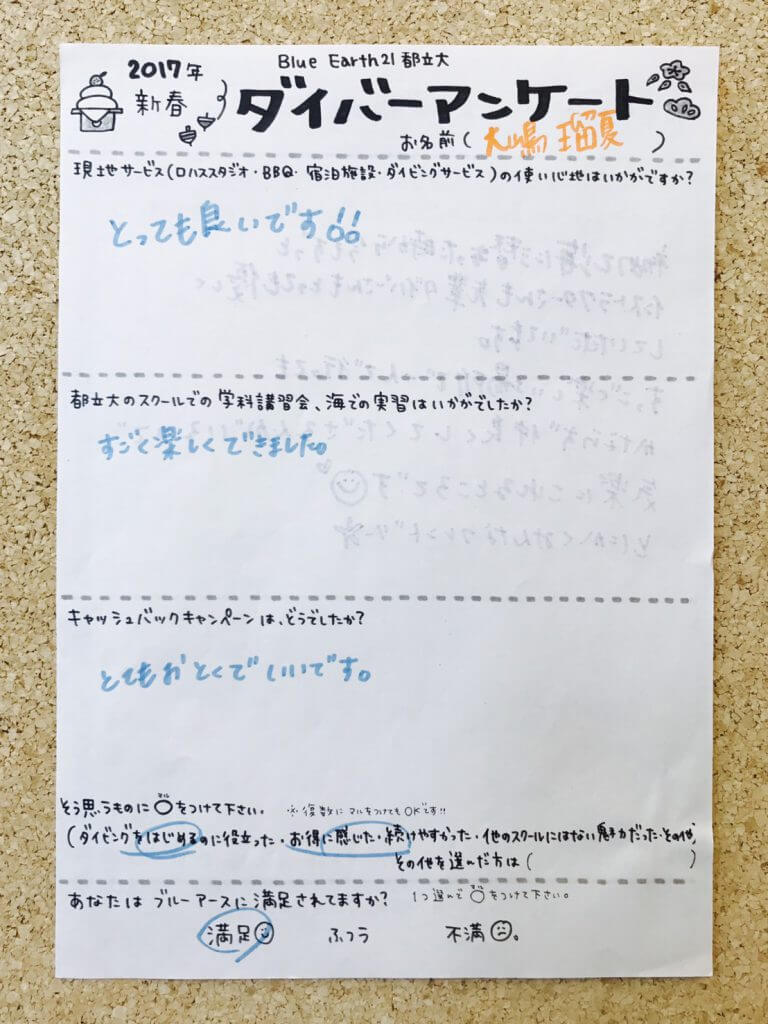 2017年
新春
Blue Earth21 都立大
ダイバーアンケート
お名前(大嶋 瑠夏)
現地サービス(ロハススタジオ・BBQ・宿泊施設・ダイビングサービス)の使い心地はいかがですか?
とっても良いです!!
都立大のスクールでの学科講習会、海での実習はいかがでしたか?
すごく楽しくできました。
キャッシュバックキャンペーンは、どうでしたか?
とてもおとくでいいです。
そう思うものに○をつけて下さい。 ※復数にマルをつけてもOKです!!
(ダイビングをはじめるのに役立った・お得に感じた・続けやすかった・他のスクールにはない魅力だった・その他)
その他を選んだ方は( )
あなたはブルーアースに満足されてますか? 1つ選んで○をつけて下さい。
満足 ふつう 不満。